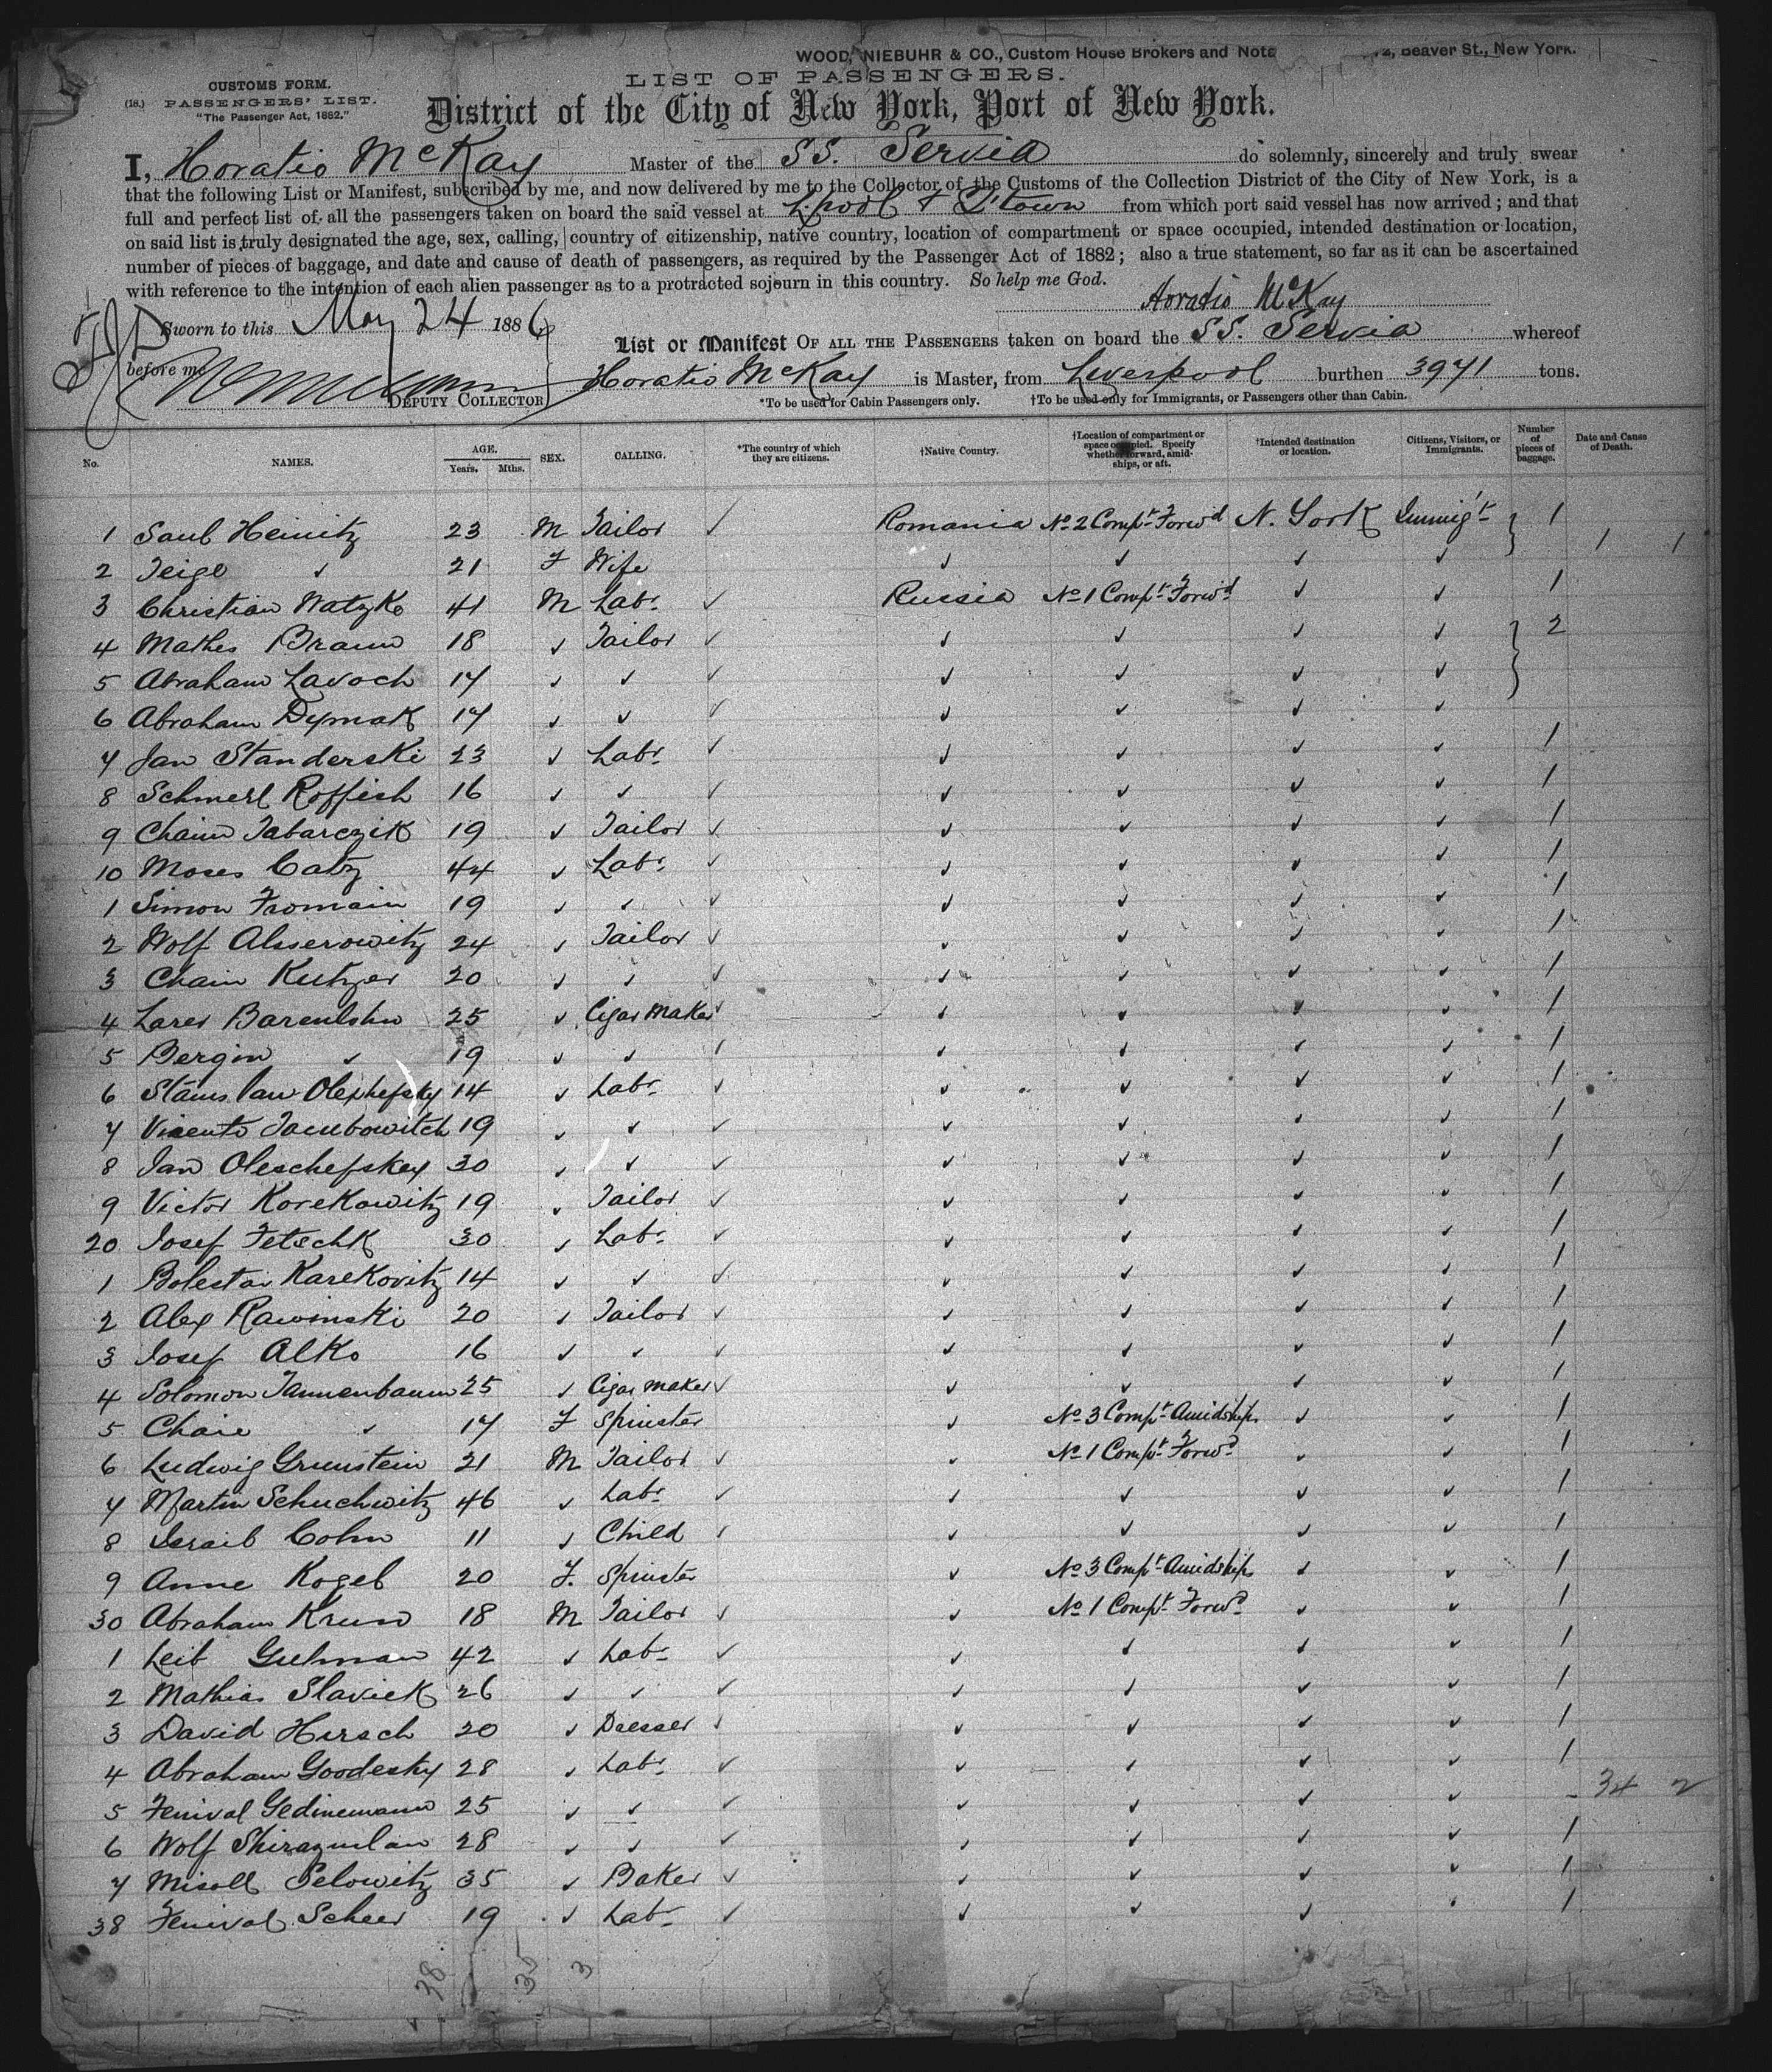 WOOD, NIEBUHR & CO., Custom House Brokers and Nota Beaver St., New York.
CUSTOMS FORM.
(18.) PASSENGERS' LIST.
"The Passenger Act, 1882."
LIST OF PASSENGERS.
District of the City of New York, Port of New York.
I, Horatio McKay Master of the SS. Servia do solemnly, sincerely and truly swear
that the following List or Manifest, subscribed by me, and now delivered by me to the Collector of the Customs of the Collection District of the City of New York, is a
full and perfect list of all the passengers taken on board the said vessel at L'pool & Q'town from which port said vessel has now arrived; and that
on said list is truly designated the age, sex, calling, country of citizenship, native country, location of compartment or space occupied, intended destination or location,
number of pieces of baggage, and date and cause of death of passengers, as required by the Passenger Act of 1882; also a true statement, so far as it can be ascertained
with reference to the intention of each alien passenger as to a protracted sojourn in this country. So help me God.
Horatio McKay
Sworn to this May 24 1886
List or Manifest OF ALL THE PASSENGERS taken on board the SS. Servia whereof
before me
Horatio McKay is Master, from Liverpool burthen 3971 tons.
DEPUTY COLLECTOR
*To be used for Cabin Passengers only. †To be used only for Immigrants, or Passengers other than Cabin.
No. NAMES. AGE. Years. Mths. SEX. CALLING. *The country of which they are citizens. †Native Country. †Location of compartment or space occupied. Specify whether forward, amidships, or aft. †Intended destination or location. Citizens, Visitors, or Immigrants. Number of pieces of baggage. Date and Cause of Death.
1 Saul Heinitz 23 M Tailor ✓ Romania No 2 Compt Forwd N. York Immigt 1 1 1
2 Teige ✓ 21 F Wife ✓ ✓ ✓ ✓
3 Christian Watzko 41 M Labr ✓ Russia No 1 Compt Forwd ✓ ✓ 1
4 Mathes Braun 18 ✓ Tailor ✓ ✓ ✓ ✓ ✓ 2
5 Abraham Lavoch 17 ✓ ✓ ✓ ✓ ✓ ✓ ✓
6 Abraham Dymak 17 ✓ ✓ ✓ ✓ ✓ ✓ ✓
7 Jan Standerski 23 ✓ Labr ✓ ✓ ✓ ✓ ✓ 1
8 Schmerl Roffish 16 ✓ ✓ ✓ ✓ ✓ ✓ ✓ 1
9 Chaim Tabarczik 19 ✓ Tailor ✓ ✓ ✓ ✓ ✓ 1
10 Moses Catz 44 ✓ Labr ✓ ✓ ✓ ✓ ✓ 1
1 Simon Fromain 19 ✓ ✓ ✓ ✓ ✓ ✓ ✓ 1
2 Wolf Alserowitz 24 ✓ Tailor ✓ ✓ ✓ ✓ ✓ 1
3 Chaim Kutzer 20 ✓ ✓ ✓ ✓ ✓ ✓ ✓ 1
4 Lares 25 ✓ Cigar Maker ✓ ✓ ✓ ✓ ✓ 1
5 Bergin ✓ 19 ✓ ✓ ✓ ✓ ✓ ✓ ✓ 1
6 Stanislaw 14 ✓ Labr ✓ ✓ ✓ ✓ ✓ 1
7 Vicenti Jacubowitch 19 ✓ ✓ ✓ ✓ ✓ ✓ ✓ 1
8 Jan Oleschefskey 30 ✓ ✓ ✓ ✓ ✓ ✓ ✓ 1
9 Victor Korekowitz 19 ✓ Tailor ✓ ✓ ✓ ✓ ✓ 1
20 Josef Fetschk 30 ✓ Labr ✓ ✓ ✓ ✓ ✓ 1
1 Karekovitz 14 ✓ ✓ ✓ ✓ ✓ ✓ ✓ 1
2 Alex Rawinski 20 ✓ Tailor ✓ ✓ ✓ ✓ ✓ 1
3 Josef Alko 16 ✓ ✓ ✓ ✓ ✓ ✓ ✓ 1
4 Solomon Tannenbaum 25 ✓ Cigar Maker ✓ ✓ ✓ ✓ ✓ 1
5 Chaie ✓ 17 F Spinster ✓ No 3 Compt Amidships ✓ ✓ 1
6 Ludwig Grunstein 21 M Tailor ✓ ✓ No 1 Compt Forwd ✓ ✓ 1
7 Martin Schuchwitz 46 ✓ Labr ✓ ✓ ✓ ✓ ✓ 1
8 Israil Cohn 11 ✓ Child ✓ ✓ ✓ ✓ ✓ 1
9 Anne Kogel 20 F. Spinster ✓ No 3 Compt Amidships ✓ ✓ 1
30 Abraham Krun 18 M Tailor ✓ ✓ No 1 Compt Forwd ✓ ✓ 1
1 Leib Gulman 42 ✓ Labr ✓ ✓ ✓ ✓ ✓ 1
2 Mathias Slavick 26 ✓ ✓ ✓ ✓ ✓ ✓ ✓ 1
3 David Hirsch 20 ✓ Dresser ✓ ✓ ✓ ✓ ✓ 1
4 Abraham Goodesky 28 ✓ Labr ✓ ✓ ✓ ✓ ✓ 1
5 Feinval Gedinemann 25 ✓ ✓ ✓ ✓ ✓ ✓ ✓ - 34 2
6 Wolf 28 ✓ ✓ ✓ ✓ ✓ ✓ ✓ 1
7 Misoll Selowitz 35 ✓ Baker ✓ ✓ ✓ ✓ ✓ 1
38 Feinval Scheer 19 ✓ Labr ✓ ✓ ✓ ✓ ✓ 1
38 35 3